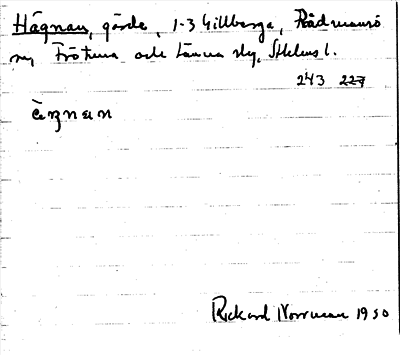 Hägnan, gärde, 1-3 Gillberga, Rådmansö
sn, Frötuna och Länna slg, Sthlms l.
243 227
Rickard Norrman 1930